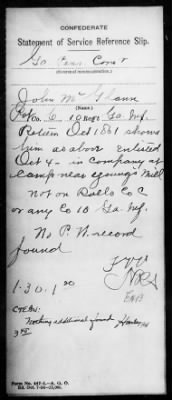 CONFEDERATE
Statement of Service Reference Slip.
Ga Pens Com r
(Source of communication.)
John McGlann
(Name.)
Co. C 10 Reg't Ga. Inf.
Return Oct 1861 shows
him as above enlisted
Oct 4 - in company at
Camp near Young's Mill
not on Rolls Co C
or any Co 10 Ga. Inf.
No P.W. record
found
1-30-1
Nothing additional found
Form No. 447-A. G. O.